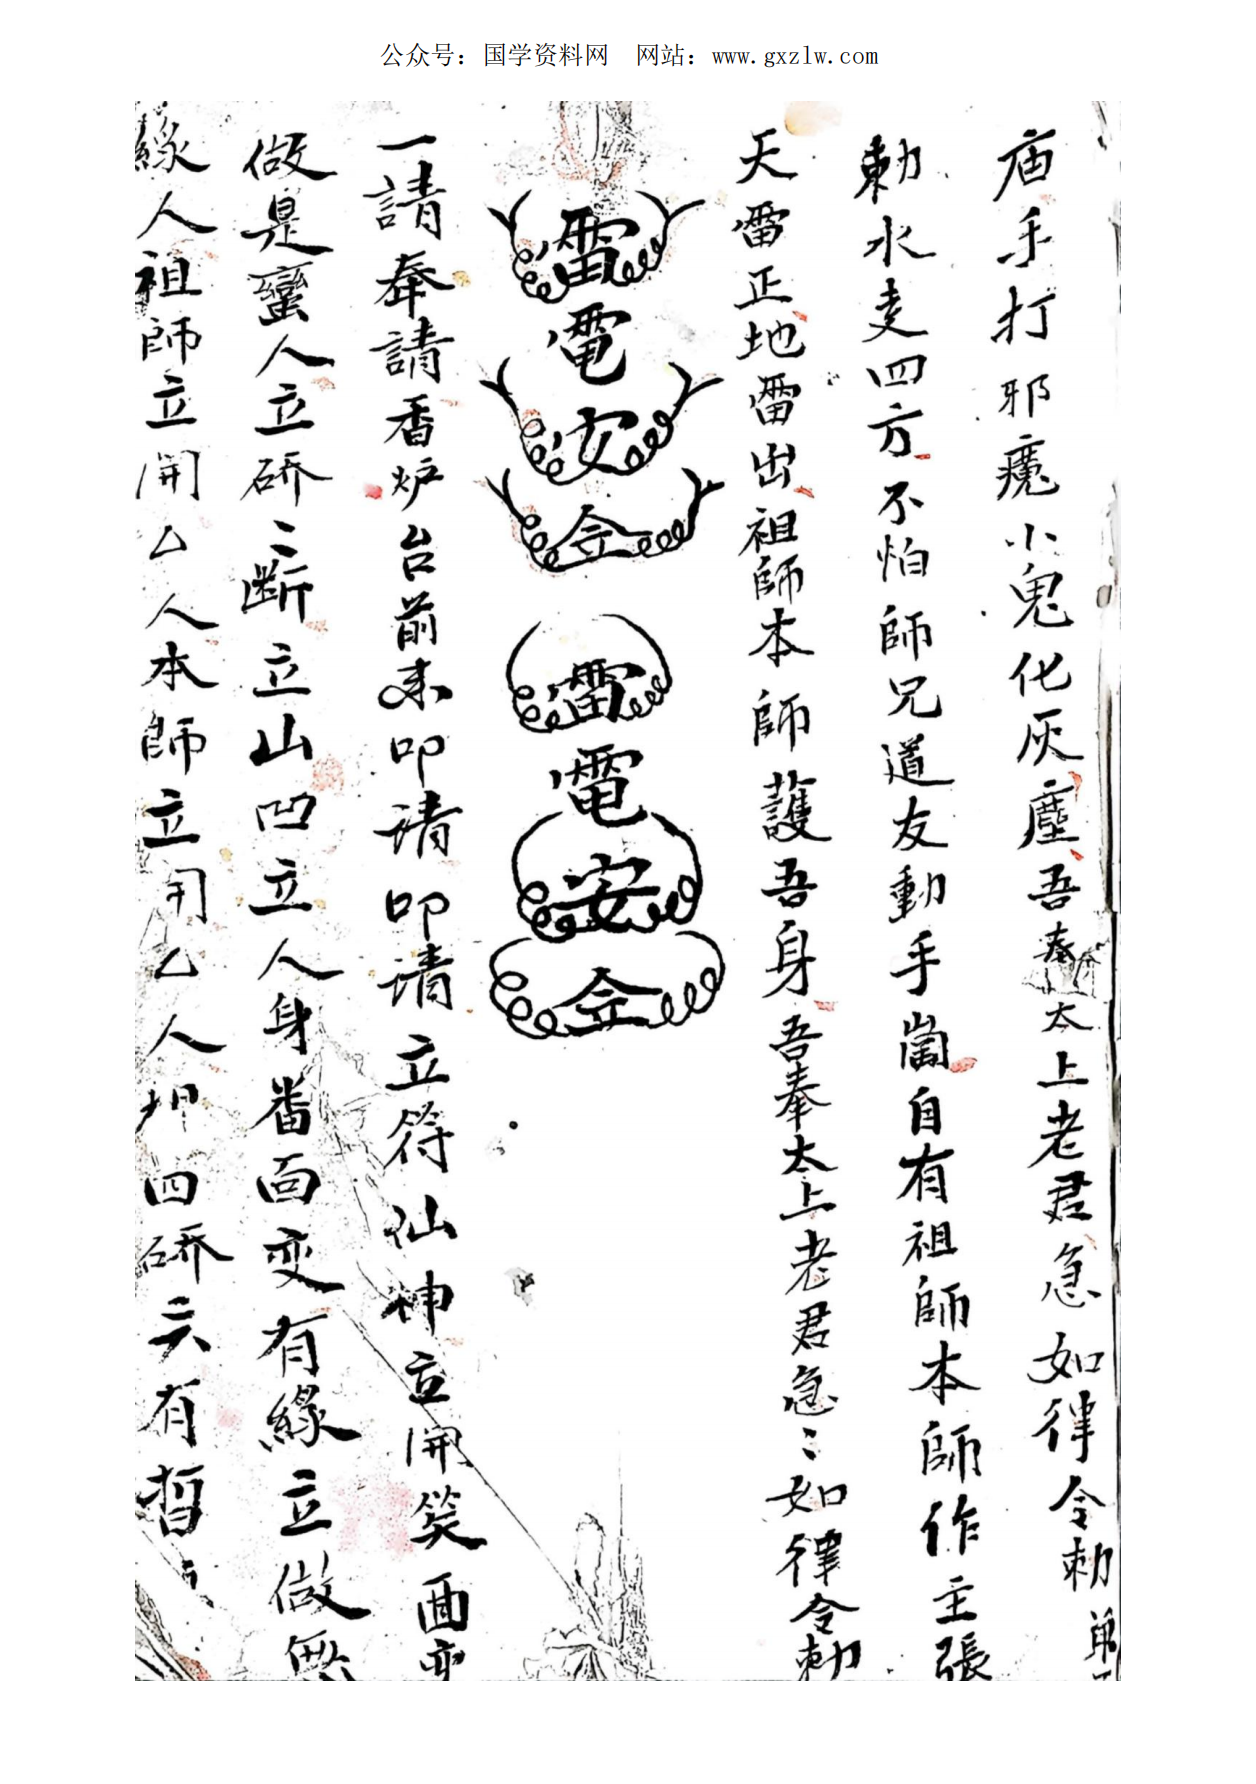 公众号：国学资料网 网站：www.gxzlw.com
庙手打邪魔小鬼化灰塵吾奉太上老君急如律令勅
勅水走四方不怕師兄道友動手當自有祖師本師作主張
天雷正地雷出祖師本師護吾身吾奉太上老君急〻如律令勅
雷電安令
雷電安令
一請奉請香炉台前来叩请叩请立符仙神立開笑面变
做是蠻人立砾〻断立山凹立人身畨面变有緣立做無
緣人祖師立開厶人本師立開厶人押四硚六有晢〻